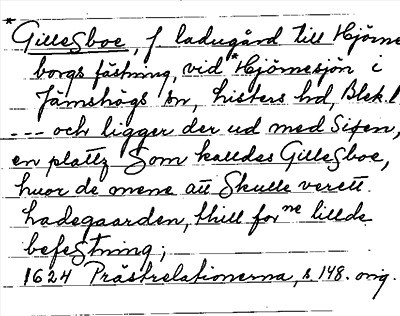 *Gillesboe, f. ladugård till Hjörne
borgs fästning, vid *Hjörnesjön i
Jämshögs sn, Listers hd, Blek.!
--- och ligger der ud med Siøen,
en plattz Som kalldes Gillesboe,
huor de mene att Skulle verett
Ladegaarden, thill for ne lillde
befestning;
1624 Prästrelationerna, s. 148. orig.